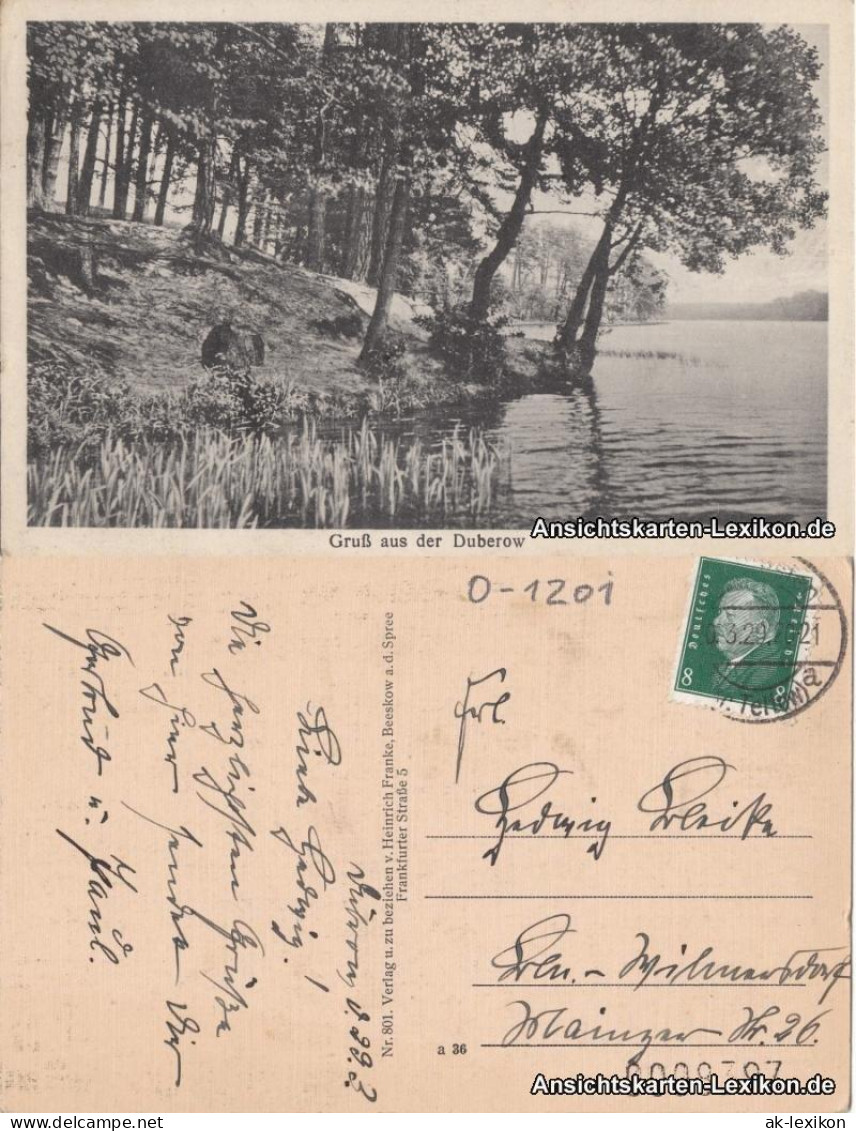 Gruß aus der Duberow
Ansichtskarten-Lexikon.de
O-1201
Deutsches Reich
8 8
3.29. 21
Teltow) a
Frl.
Hedwig Bleike
Bln.-Wilmersdorf
Mainzer Str. 26.
a 36
0009797
Nr. 801. Verlag u. zu beziehen v. Heinrich Franke, Beeskow a. d. Spree
Frankfurter Straße 5
Liebe Hedwig!
Die herzlichsten Grüße
von hier sendet Dir
Gertrud u. Paul.
Ansichtskarten-Lexikon.de
www.ansichtskarten-lexikon.de
ak-lexikon